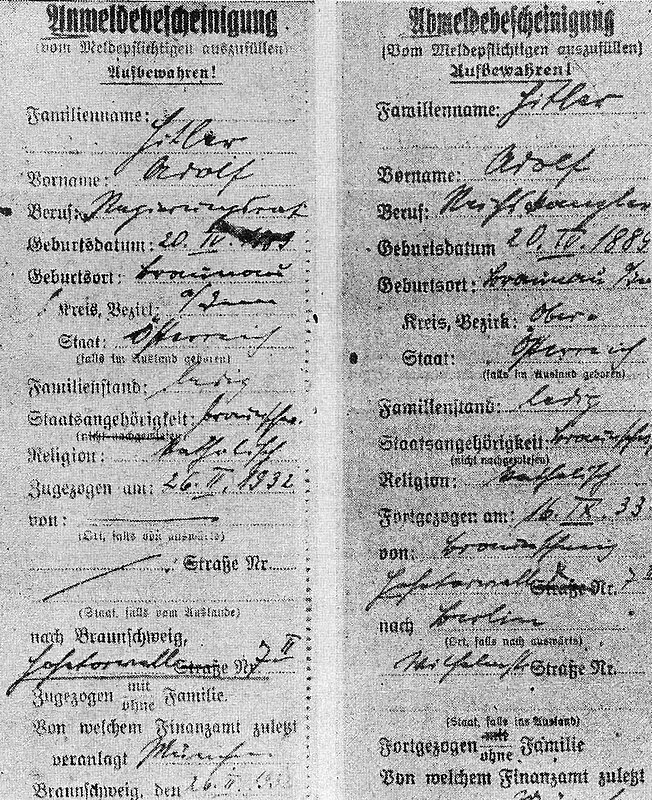 Anmeldebescheinigung
(vom Meldepflichtigen auszufüllen)
Aufbewahren!
Familienname:
Hitler
Vorname: Adolf
Beruf: Regierungsrat
Geburtsdatum: 20. IV.
Geburtsort: Braunau
Kreis, Bezirk: a/Inn
Staat: Österreich
(falls im Ausland geboren)
Familienstand: ledig
Staatsangehörigkeit:
(nicht nachgewiesen)
Religion: katholisch
Zugezogen am: 26. II. 1932
von:
(Ort, falls von auswärts)
Straße Nr.
(Staat, falls vom Auslande)
nach Braunschweig,
Hohetorwall Straße Nr. 7 II
Zugezogen mit
ohne Familie.
Von welchem Finanzamt zuletzt
veranlagt München
Braunschweig, den 26. II. 1932
Abmeldebescheinigung
(Vom Meldepflichtigen auszufüllen)
Aufbewahren!
Familienname: Hitler
Vorname: Adolf
Beruf: Reichskanzler
Geburtsdatum 20. IV. 1889
Geburtsort: Braunau a/Inn
Kreis, Bezirk: Ober-
Staat: Österreich
(falls im Ausland geboren)
Familienstand: ledig
Staatsangehörigkeit:
(nicht nachgewiesen)
Religion: katholisch
Fortgezogen am: 16. IX. 33
von: Braunschweig
Hohetorwall Straße Nr. 7 II
nach Berlin
(Ort, falls nach auswärts)
Wilhelmstr Straße Nr.
(Staat, falls ins Ausland)
Fortgezogen mit
ohne Familie
Von welchem Finanzamt zuletzt